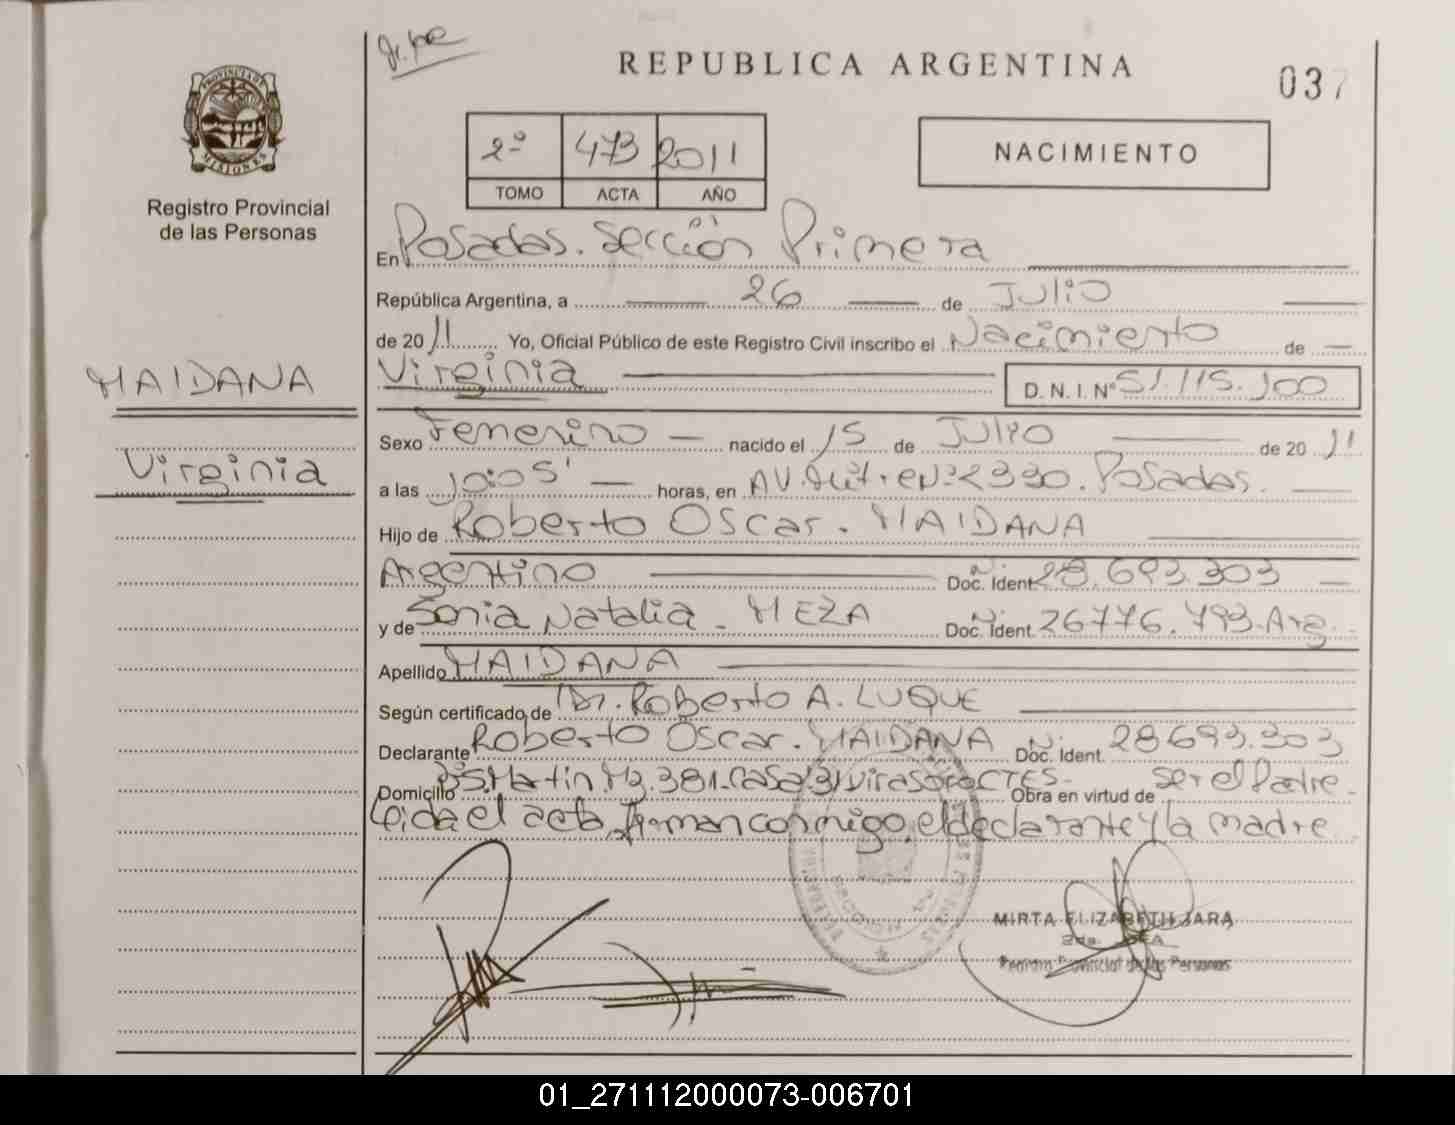 REPUBLICA ARGENTINA
037
2º 473 2011
TOMO ACTA AÑO
NACIMIENTO
PROVINCIA DE MISIONES
Registro Provincial
de las Personas
En Posadas. Sección Primera
República Argentina, a 26 de Julio
de 2011 Yo, Oficial Público de este Registro Civil inscribo el Nacimiento de
MAIDANA
Virginia
Virginia D. N. I. Nº 51.115.100
Sexo Femenino nacido el 15 de Julio de 2011
a las horas, en AV. Nº 2330. Posadas.
Hijo de Roberto Oscar. MAIDANA
Argentino Doc. Ident. 28.693.303
y de Sonia Natalia - MEZA Doc. Ident. 26776.793-Arg.
Apellido MAIDANA
Según certificado de Dr. Roberto A. LUQUE
Declarante Roberto Oscar. MAIDANA Doc. Ident. 28693.303
Domicilio Martin Mz. 381-Casa 3) Virasoro CTES- Obra en virtud de ser el Padre-
Leida el acta, firman conmigo, el declarante y la madre
MIRTA ELIZABETH JARA
Registro Provincial de las Personas
01_271112000073-006701